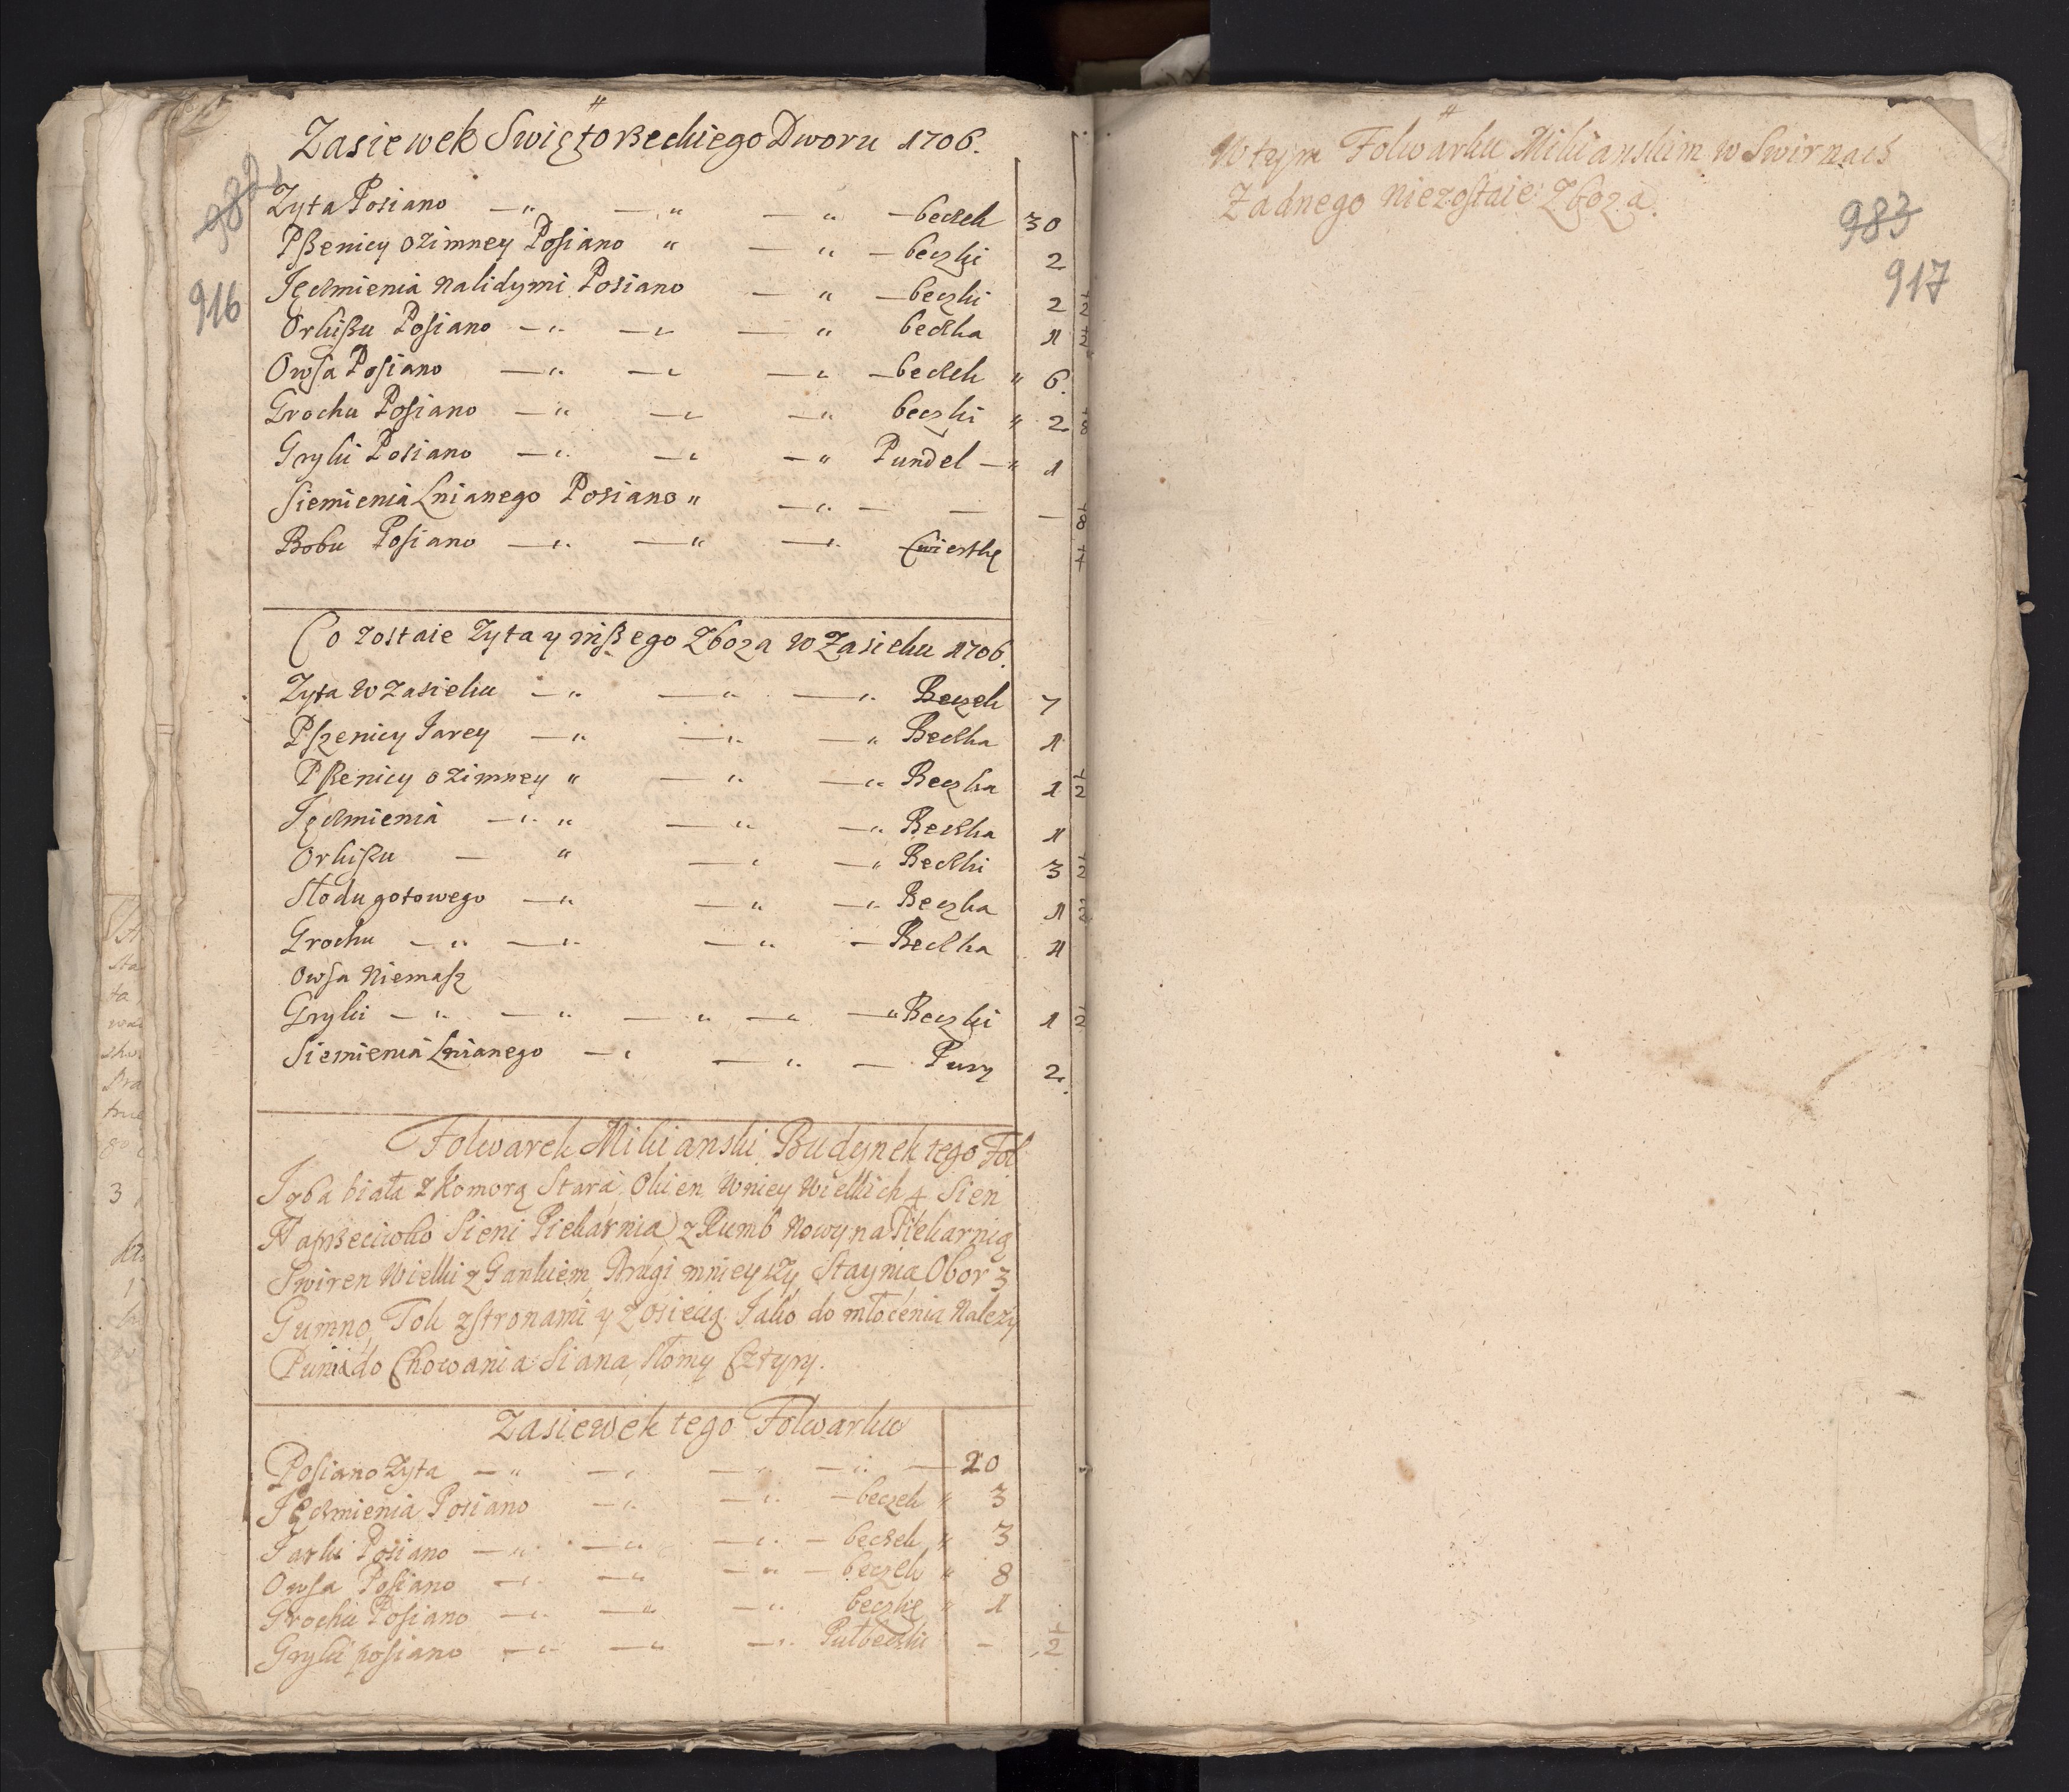 Zasiewek SwiętoRzeckiego Dworu 1706.
982
916
Zyta Posiano — „ — „ — „ — beczek 30
Pßenicy ozimney Posiano „ — „ — beczki 2
Jęczmienia nalidymi Posiano — „ — beczki 2 ½
Orkißu Posiano — „ — „ — „ beczka 1 ½
Owsa Posiano — „ — „ — „ — beczek „ 6.
Grochu Posiano — „ — „ — „ beczki „ 2 ⅛
Gryki Posiano — „ — „ — „ Pundel — „ 1
Siemienia Lnianego Posiano „ — „ — — — ⅛
Bobu Posiano — „ — „ — „ Cwiertkę ¼
Co zostaie Zyta y inßego Zboza w Zasieku 1706.
Zyta w zasieku — „ — „ — „ Beczek 7
Pszenicy Jarey — „ — „ — „ Beczka 1
Pßenicy ozimney „ — „ — „ Beczka 1 ½
Jęczmienia — „ „ — „ — „ Beczka 1
Orkißu — „ — „ — „ Beczki 3 ½
Słodu gotowego — „ — „ — „ Beczka 1 ½
Grochu — „ — „ — „ — Beczka 1
Owsa Niemasz
Gryki — „ — „ — „ — „ — „ Beczki 1 ½
Siemienia Lnianego — „ — „ — Purz 2.
Folwarek Mikianski Budynek tego Fol
Izba biała z Komorą Stara, Okien w niey Wielkich 4 Sien
Naprzeciwko Sieni Piekarnia, z Rumb Nowy na Piekarnią
Swiren Wielki z Gankiem, Drugi mnieyszy, Staynia Obor 3
Gumno, Tok z stronami y z osiecią. Jako do młocenia Nalezy
Punia do Chowania Siana, słomy Cztyry.
Zasiewek tego Folwarku
Posiano Zyta — „ — „ — „ — „ — 20
Jęczmienia Posiano — „ — „ — beczek „ 3
Jarki Posiano — „ — „ — „ — beczek „ 3
Owsa Posiano — „ — „ — „ — beczek „ 8
Grochu Posiano — „ — „ — „ beczkę „ 1
Gryki posiano — „ — „ — „ Pułbeczki — ½
W tym Folwarku Mikianskim w Swirnach
Zadnego niezostaie Zboza.
983
917